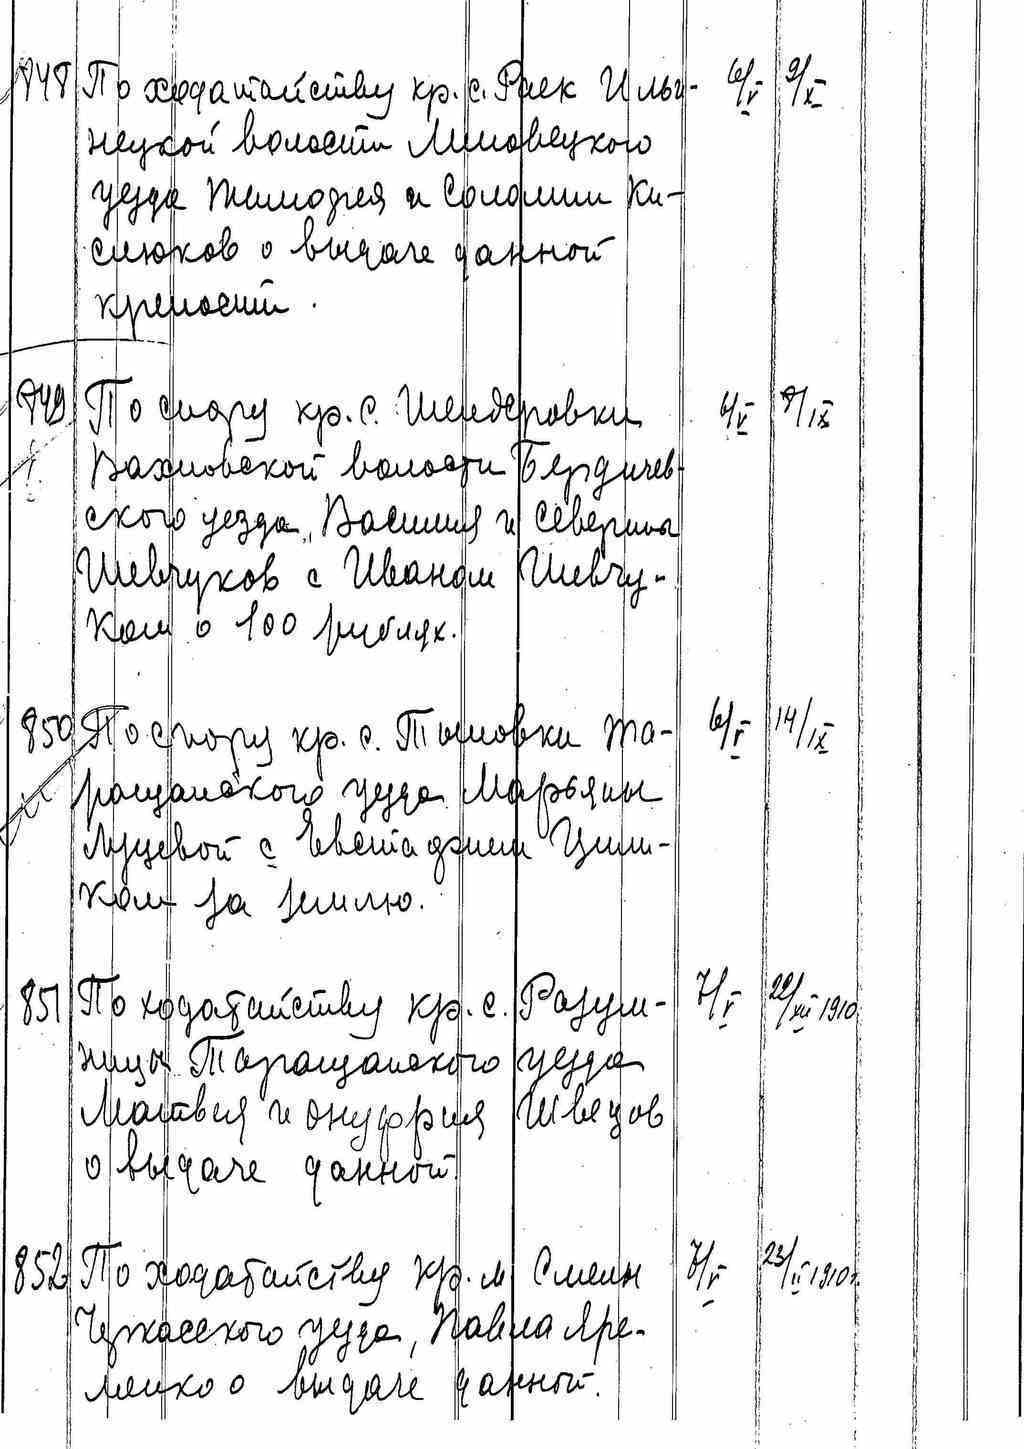 848 По ходатайству кр. с. Раек Ильи- 6/V 9/XI
нецкой волости Липовецкого
уезда Тимофея и Соломии Ки-
слюков о выдаче данной
крепости.
849 По спору кр. с. Шендеровки 6/V 9/IX
Вахновской волости Бердичев-
ского уезда, Василия и Северина
Шевчуков с Иваном Шевчу-
ком о 100 рублях.
850 По спору кр. с. Тыновки Та- 6/V 14/IX
ращанского уезда Марьяны
Луцевой с Евстафием Цими-
ком за землю.
851 По ходатайству кр. с. Разум- 7/V 22/XII 1910
ницы Таращанского уезда
Матвея и Онуфрия Швецов
о выдаче данной.
852 По ходатайству кр. м. Смелы 7/V 23/II 1910 г.
Черкасского уезда, Павла Яре-
менко о выдаче данной.